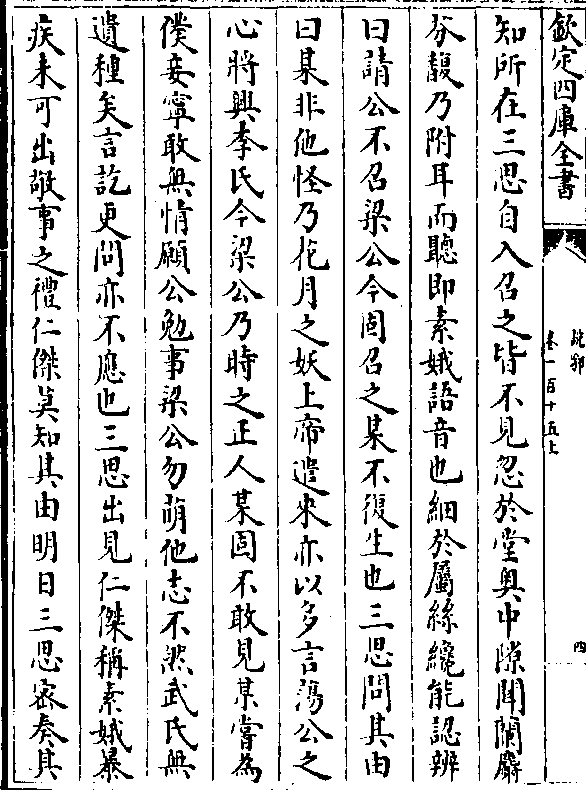 欽定四庫全書
説郛
卷一百十五上
四
知所在三思自入召之皆不見忽於堂奥中隙聞蘭麝
芬馥乃附耳而聽即素娥語音也細於屬絲纔能認辨
曰請公不召梁公今固召之某不復生也三思問其由
曰某非他怪乃花月之妖上帝遣來亦以多言蕩公之
心將興李氏今梁公乃時之正人某固不敢見某嘗為
僕妾寧敢無情願公勉事梁公勿萌他志不然武氏無
遺種矣言訖更問亦不應也三思出見仁傑稱素娥暴
疾未可出敬事之禮仁傑莫知其由明日三思密奏其